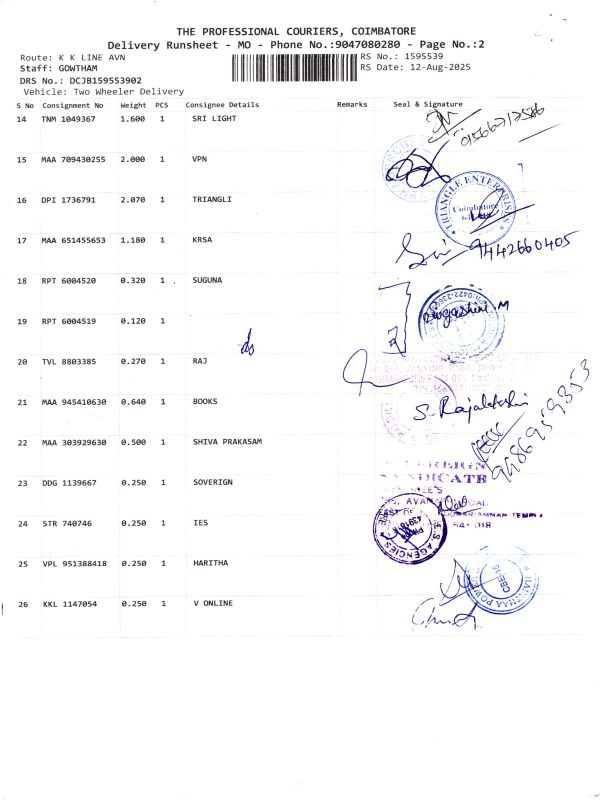 THE PROFESSIONAL COURIERS, COIMBATORE
Delivery Runsheet - MO - Phone No.:9047080280 - Page No.:2
Route: K K LINE AVN
RS No.: 1595539
Staff: GOWTHAM
RS Date: 12-Aug-2025
DRS No.: DCJB159553902
Vehicle: Two Wheeler Delivery
S No Consignment No Weight PCS Consignee Details Remarks Seal & Signature
14 TNM 1049367 1.600 1 SRI LIGHT
15 MAA 709430255 2.000 1 VPN
16 DPI 1736791 2.070 1 TRIANGLI
TRIANGLE ENTERPRISES
Coimbatore
17 MAA 651455653 1.180 1 KRSA
9442660405
18 RPT 6004520 0.320 1 SUGUNA
19 RPT 6004519 0.120 1
20 TVL 8803385 0.270 1 RAJ
21 MAA 945410630 0.640 1 BOOKS
S. Rajalakshmi
9486959353
22 MAA 303929630 0.500 1 SHIVA PRAKASAM
23 DDG 1139667 0.250 1 SOVERIGN
24 STR 740746 0.250 1 IES
AGENCIES
25 VPL 951388418 0.250 1 HARITHA
26 KKL 1147054 0.250 1 V ONLINE